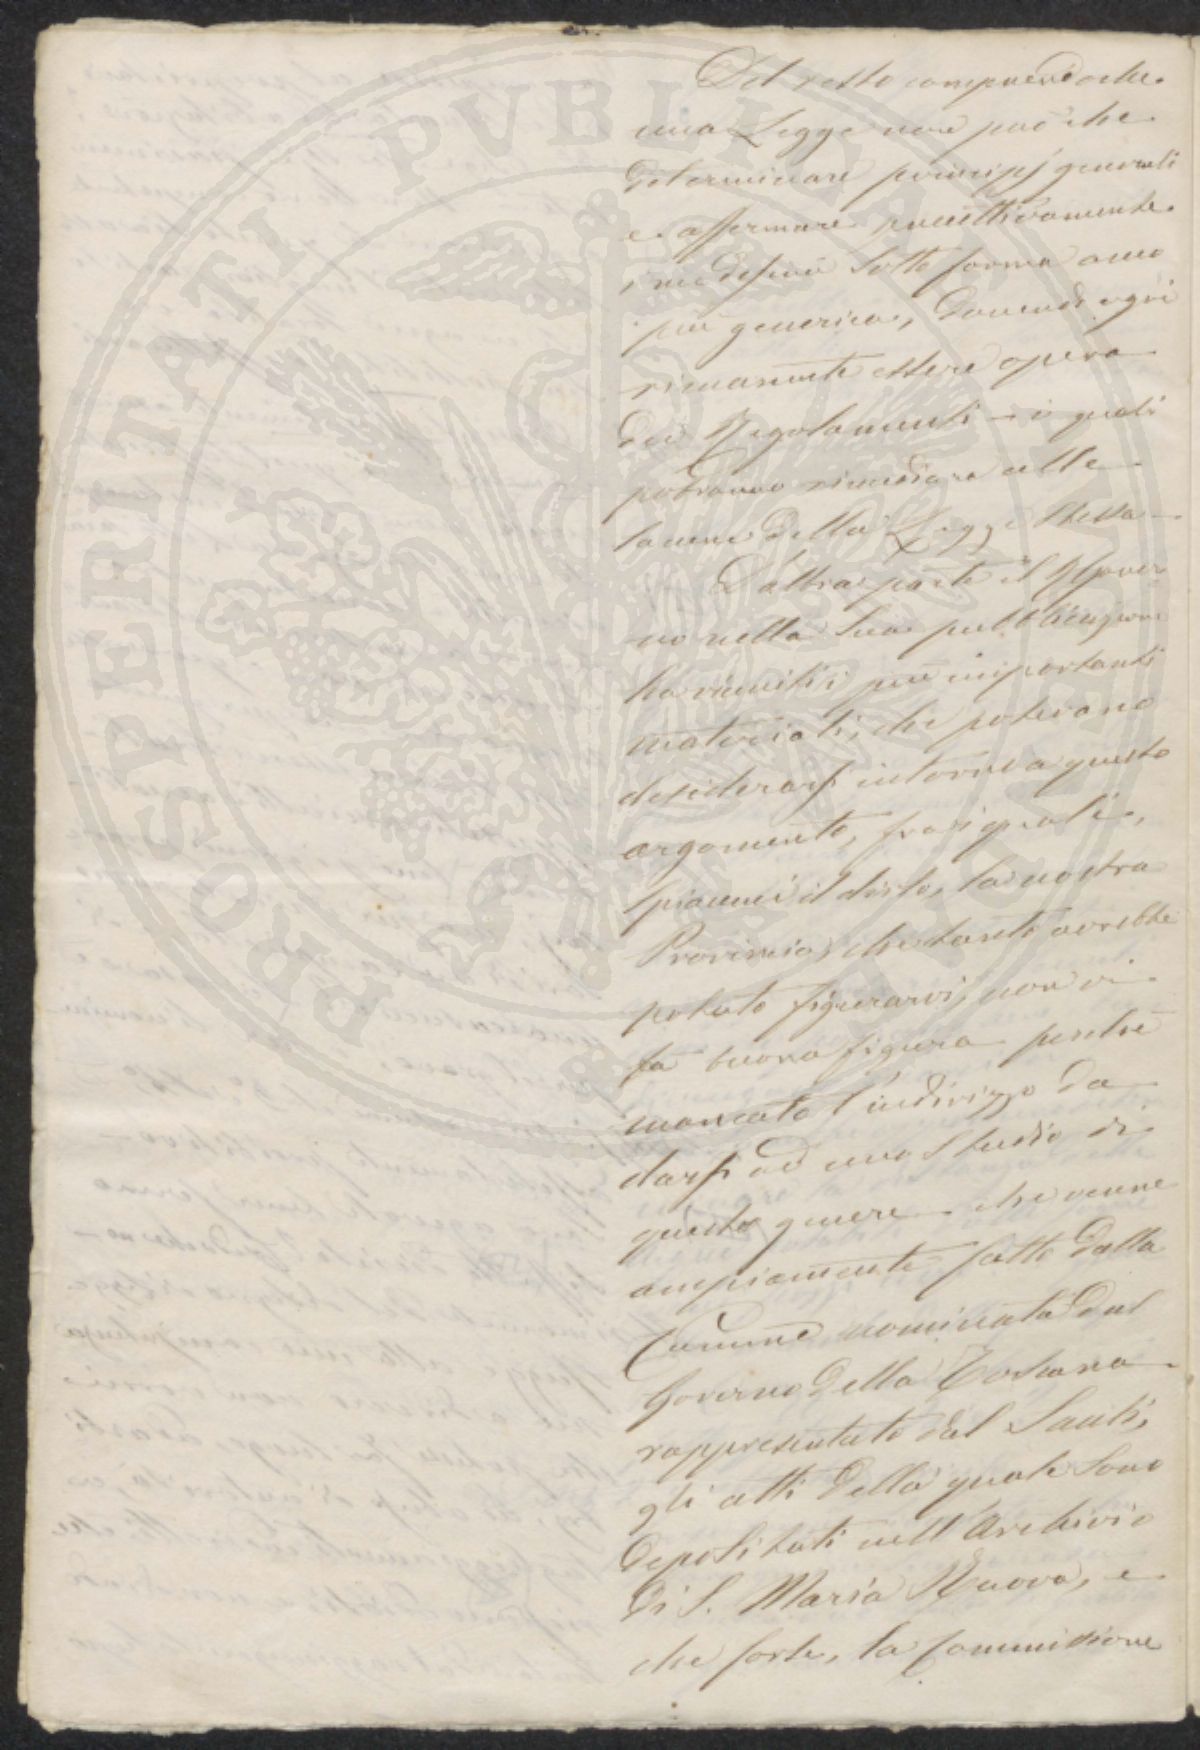 PUBLICAE PROSPERITATI
Del resto comprendo che
una Legge non può che
determinare principj generali
e affermare precettivamente
i medesimi sotto forma anco
più generica, dovendo ogni
rimanente essere opera
dei Regolamenti - i quali
potranno rimediare alle
lacune della Legge stessa -
D'altra parte il Gover-
no nella sua pubblicazione
ha riuniti i più importanti
materiali, che potevano
desiderarsi intorno a questo
argomento, fra i quali,
spiacemi il dirlo, la nostra
Provincia, che tanto avrebbe
potuto figurarvi, non vi
fà buona figura perchè
mancato l'indirizzo da
darsi ad uno studio di
questo genere - che venne
ampiamente fatto dalla
nominata dal
Governo della Toscana
rappresentato dal Santi,
gli atti della quale sono
depositati nell'Archivio
di S. Maria Nuova, e
che forse, la Commissione